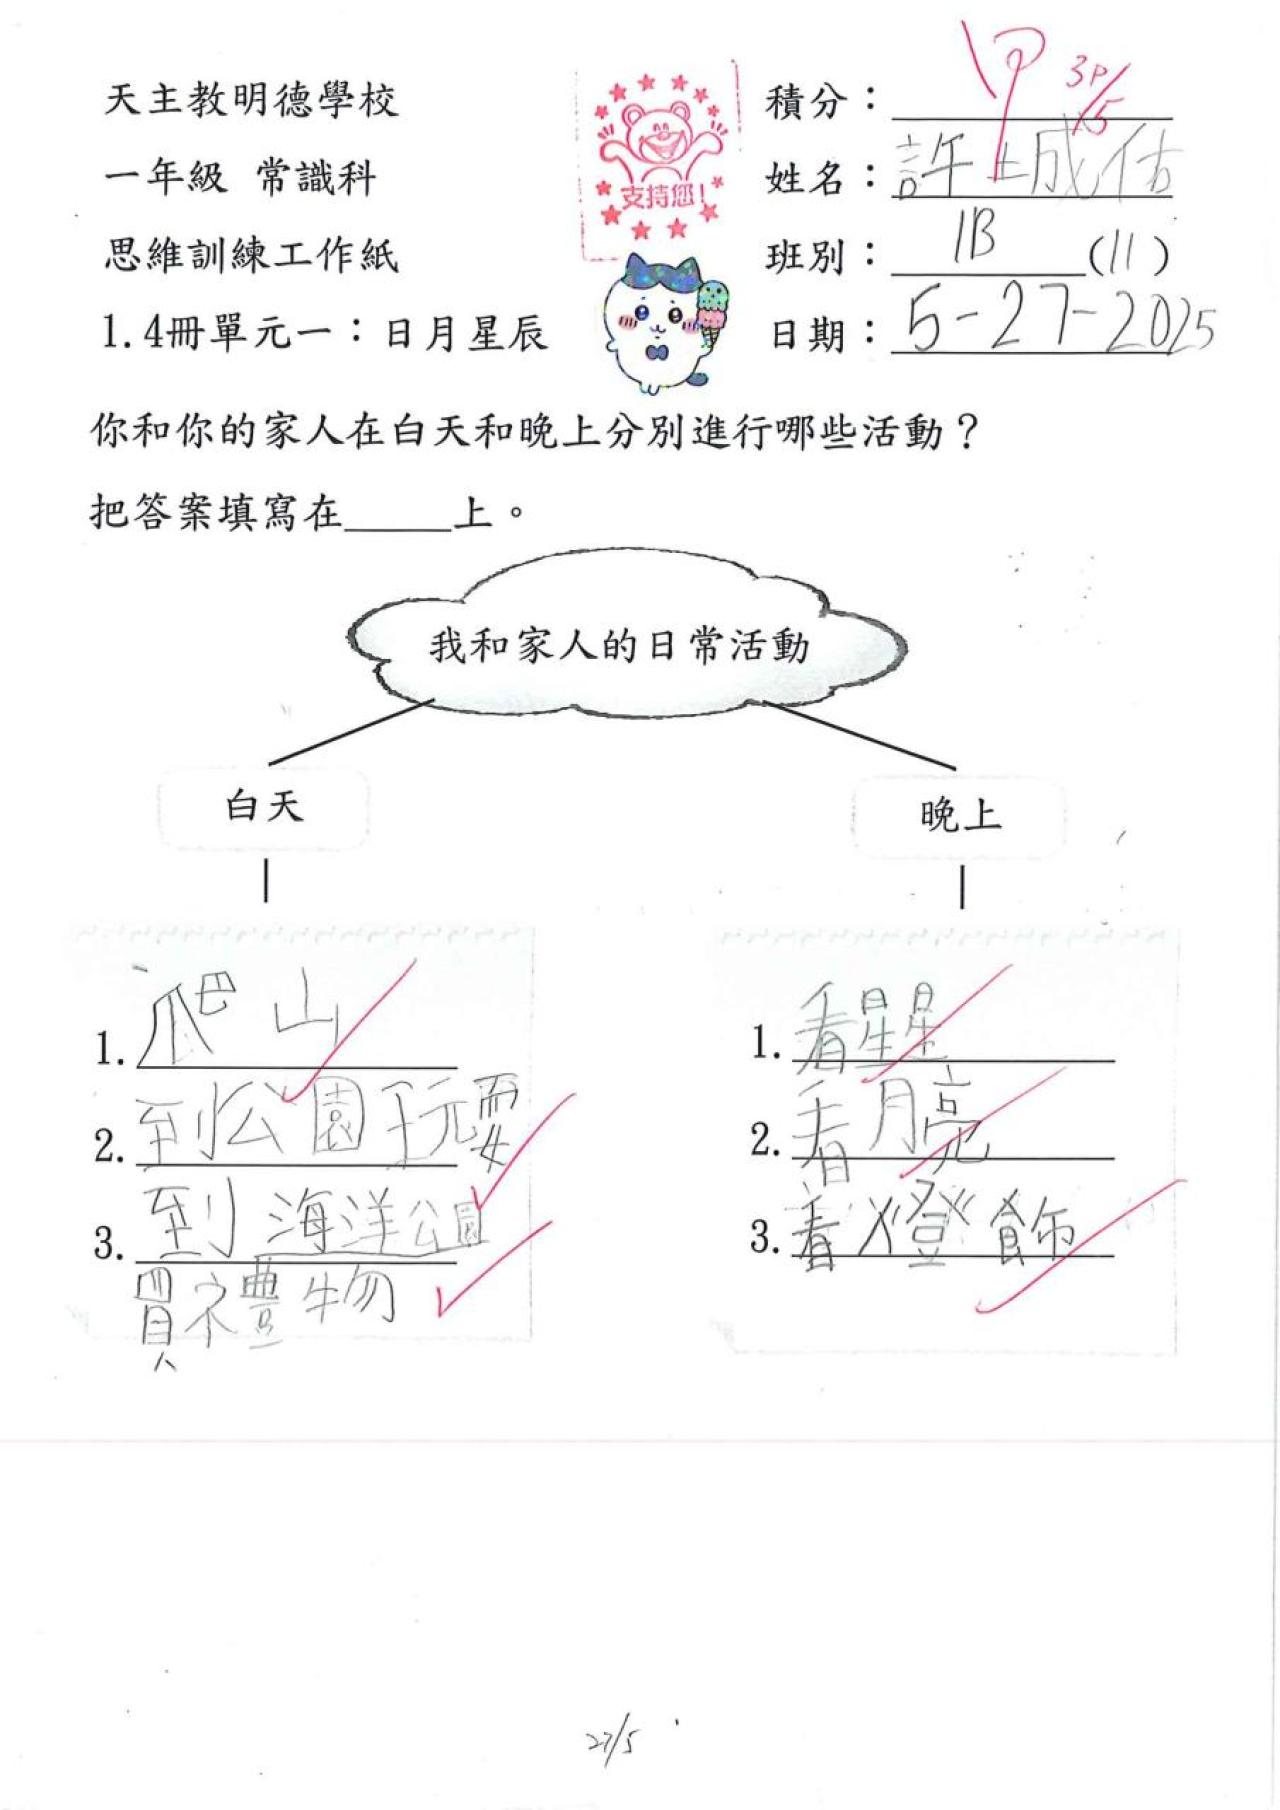 天主教明德學校
積分：甲
一年級 常識科
支持您！
姓名：許城佑
思維訓練工作紙
班別：1B (11)
1.4冊單元一：日月星辰
日期：5-27-2025
你和你的家人在白天和晚上分別進行哪些活動？
把答案填寫在_____上。
我和家人的日常活動
白天
晚上
1. 爬山
2. 到公園玩耍
3. 到海洋公園
買禮物
1. 看星星
2. 看月亮
3. 看燈飾
27/5